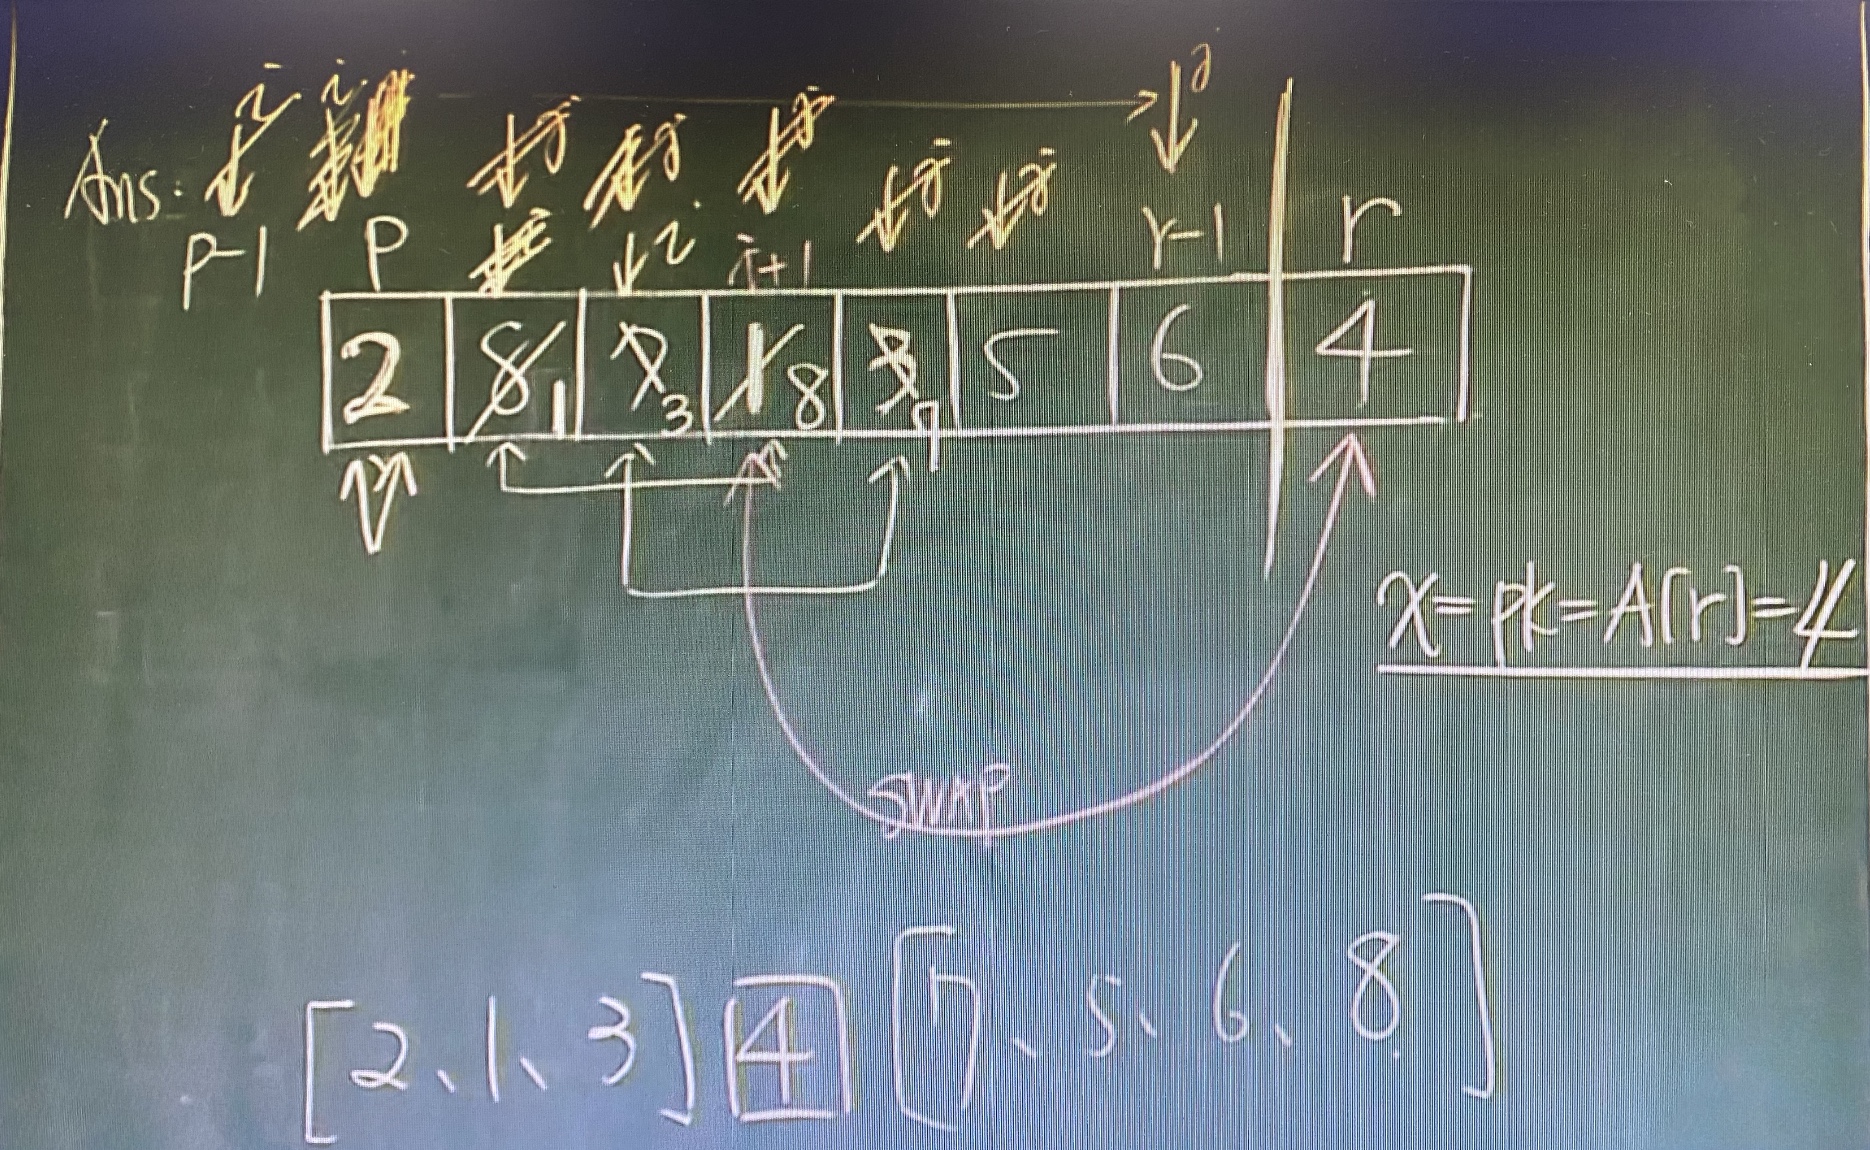 i i j
Ans: j j j j j
P-1 P i i+1 r-1 r
2 8 1 7 3 1 8 3 7 5 6 4
x=pk=A[r]=4
SWAP
[2、1、3] 4 [7、5、6、8]